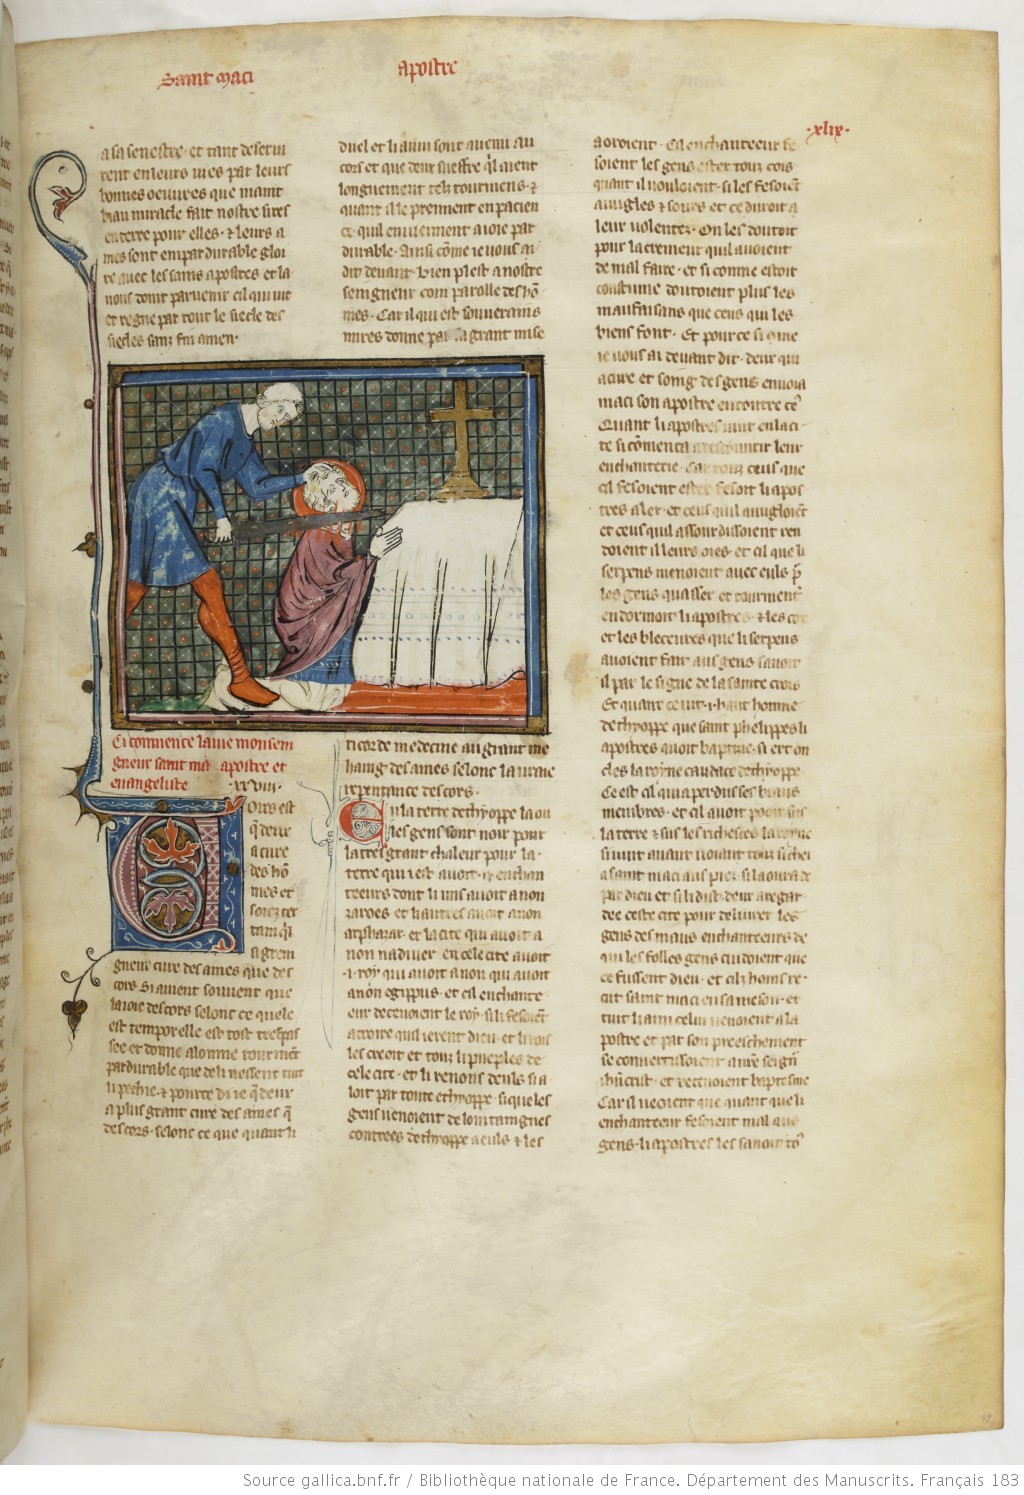 Saint Maci
apostre
.xlix.
a sa senestre. et tant deserui
rent en leurs uies par leurs
bonnes oeuures que maint
biau miracle fait nostre sires
en terre pour elles. & leurs a
mes sont en pardurable gloi
re auec les sains apostres et la
nous doint paruenir cil qui uit
et regne par tout le siecle des
siecles sanz fin amen.
Ci commence la uie monsein
gneur saint ma apostre et
euangeliste .xxviii.
ours est
q̃ dieux
a cure
des hõ
mes et
tant q̃l
a grein
gneur cure des ames que des
cors. Si auient souuent que
la ioie des cors selonc ce quele
est temporelle est tost trespas
see et donne a lomme tourmẽt
pardurable que deli nessent tuit
li pechie. & pource di ie q̃ diex
a plus grant cure des ames q̃
des cors. selonc ce que quant li
duel et li anui sont auenu au
cors et que diex sueffre q̃l aient
longuement tels tourmens. &
quant il le prennent en pacien
ce quil enuiennent a ioie par
durable. Ainsi cõme ie uous ai
dit deuant. bien plest a nostre
seingneur com parolle des hõ
mes. Car il qui est souuerains
mires donne par sa grant mise
ricorde medecine au grant me
haing des ames selonc la uraie
repentance des cors.
En la terre dethyoppe la ou
les gens sont noir pour
la tres grant chaleur pour la
terre qui i est auoit .ii. enchan
teeurs dont li uns auoit a non
zaroes. et li autres auoit a non
arphaxar. et la cite qui auoit a
non nadiuer. en cele cite auoit
.i. roy qui auoit a non qui auoit
a nõn egippus. et cil enchante
eur deceuoient le roy. si li fesoiẽt
acroire quil ierent dieu. et li rois
les creoit et touz li pueples de
cele cite. et li renons deuls si a
loit par toute ethyoppe si que les
gens uenoient de lointaingnes
contrees dethyoppe a euls & les
aoroient. Cil enchanteeur fe
soient les gens ester tout cois
quant il uouloient. si les fesoiẽt
auugles & sours et ce duroit a
leur uolentez. On les doutoit
pour la crement quil auoient
de mal faire. et si comme estoit
coustume doutoient plus les
maufaisans que ceus qui les
biens font. Et pource si q̃me
ie uous ai deuant dit. diex qui
a cure et soing des gens enuoia
maci son apostre encontre ceꝰ
Quant li apostres uint en la ci
te si cõmenca a descouurir leur
enchanterie. Car touz ceus que
cil fesoient ester fesoit li apos
tres aler. et ceus quil auugloiẽt
et ceus quil assourdissoient ren
doient il leurs oies. et cil que li
serpens menoient auec euls p̃
les gens quasser et tourmenter
endormoit li apostres. & les cor
et les bleceures que li serpens
auoient fait aus gens sanoit
il par le signe de la sainte crois
Et quant ce uit .i. haut homme
dethyoppe que saint phelippes li
apostres auoit baptizie. si ert on
cles la royne caudace dethyoppe.
Ce est cil qui a perdu ses biaus
membres. et cil auoit pooir sus
la terre & sus les richesces la royne
si uint auant uoiant touz si chei
a saint maci aus piez. si la oura de
par dieu et si li dist. diex a regar
dee ceste cite pour deliurer les
gens des maus enchanteeurs de
qui les folles gens cuidoient que
ce fussent dieu. et cilz homs re
cut saint maci en sa meson. et
tuit li ami celui uenoient a la
postre et par son preeschement
se conuertissoient a nr̃e seign̄
ihũcrist. et receuoient baptesme
Car il ueoient que quant que li
enchanteeur fesoient mal aus
gens. li apostres les sanoit tõ
Source gallica.bnf.fr / Bibliothèque nationale de France. Département des Manuscrits. Français 183